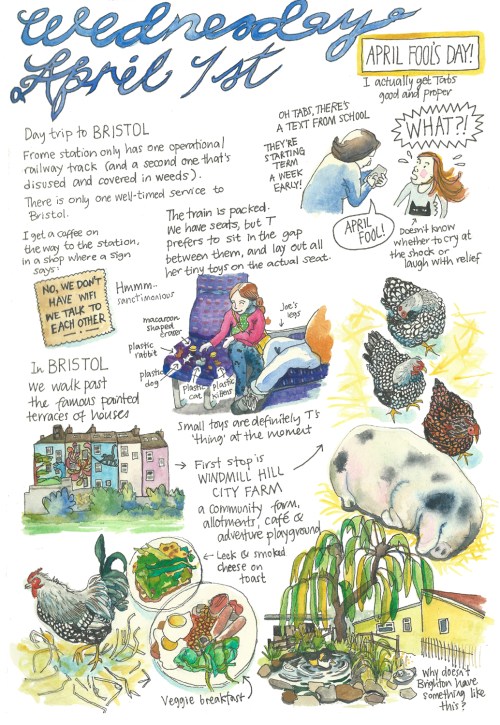 Wednesday
April 1st
APRIL FOOL'S DAY!
I actually get Tabs
good and proper
OH TABS, THERE'S
A TEXT FROM SCHOOL
THEY'RE
STARTING
TERM
A WEEK
EARLY!
WHAT?!
APRIL
FOOL!
Doesn't know
whether to cry at
the shock or
laugh with relief
Day trip to BRISTOL
Frome station only has one operational
railway track (and a second one that's
disused and covered in weeds).
There is only one well-timed service to
Bristol.
I get a coffee on
the way to the station,
in a shop where a sign
says:
NO, WE DON'T
HAVE WIFI
WE TALK TO
EACH OTHER
Hmmm..
sanctimonious
The train is packed.
We have seats, but T
prefers to sit in the gap
between them, and lay out all
her tiny toys on the actual seat.
macaroon
shaped
eraser
plastic
rabbit
plastic
dog
plastic
cat
plastic
kittens
Joe's
legs
Small toys are definitely T's
'thing' at the moment
In BRISTOL
we walk past
the famous painted
terraces of houses
First stop is
WINDMILL HILL
CITY FARM
a community farm,
allotments, café &
adventure playground
Leek & smoked
cheese on
toast
Veggie breakfast
Why doesn't
Brighton have
something like
this?